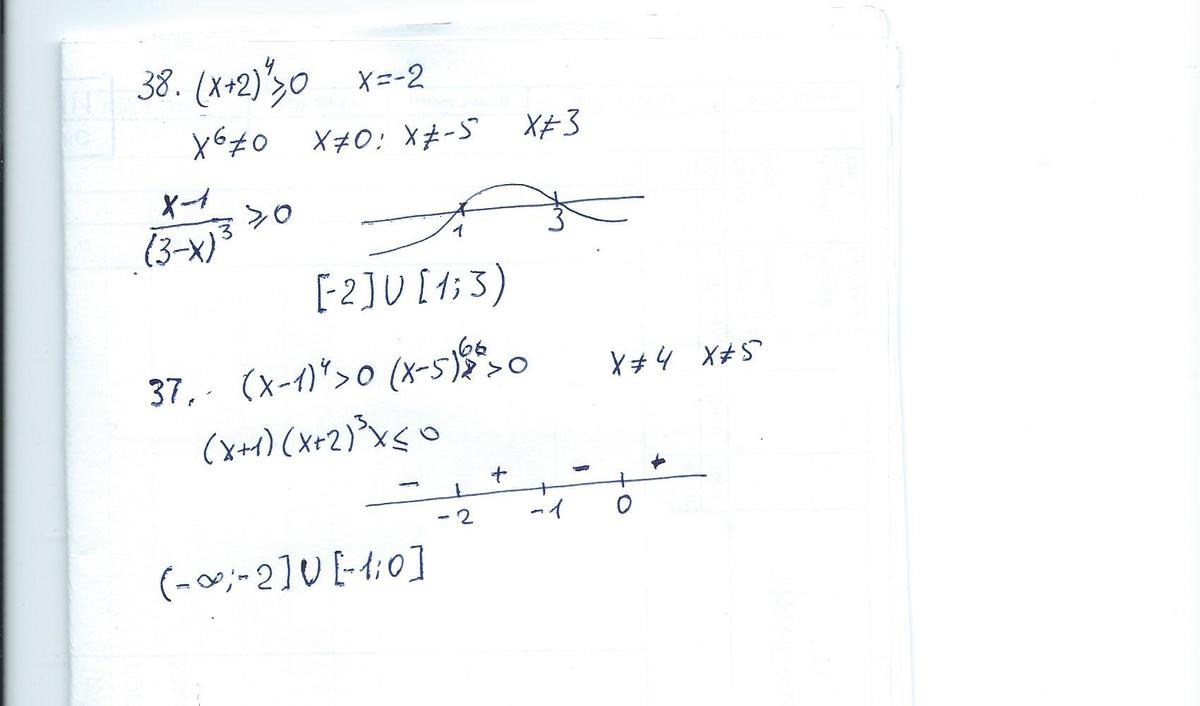 38. (x+2)⁴≥0 x=-2
x⁶≠0 x≠0; x≠-5 x≠3
x-1
/(3-x)³ ≥0
1 3
[-2]∪[1;3)
37. (x-1)⁴>0 (x-5)⁶>0 x≠4 x≠5
(x+1)(x+2)³x≤0
- + - +
-2 -1 0
(-∞;-2]∪[-1;0]